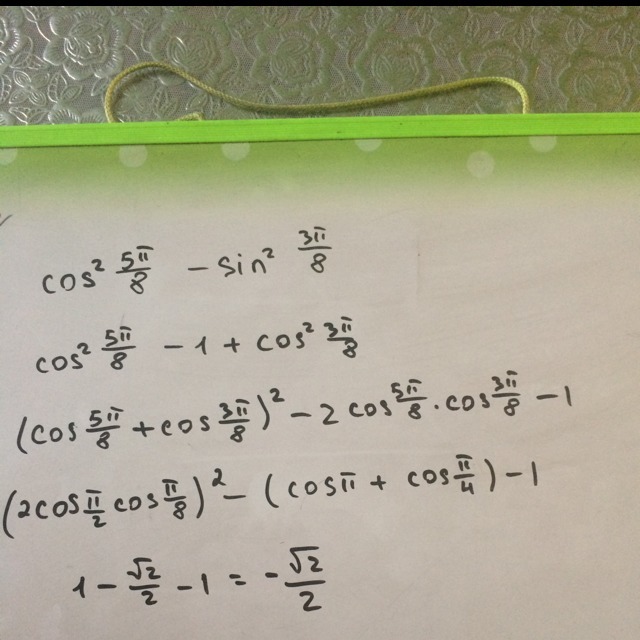 cos² 5π/8 - sin² 3π/8
cos² 5π/8 - 1 + cos² 3π/8
(cos 5π/8 + cos 3π/8)² - 2 cos 5π/8 · cos 3π/8 - 1
(2cos π/2 cos π/8)² - (cosπ + cos π/4) - 1
1 - √2/2 - 1 = - √2/2